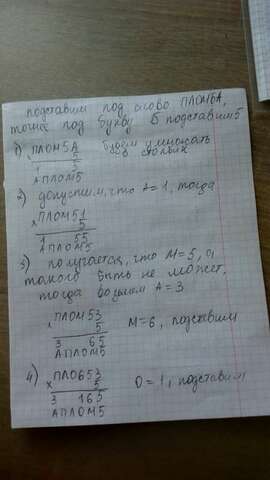 подставим под слово ПЛОМБА,
тогда под букву Б подставим 5
1) ПЛОМ5А будем умножать
× 5 в столбик
АПЛОМ5
2) допустим, что А=1, тогда
ПЛОМ51
× 5
1 55
АПЛОМ5
3) получается, что М=5, а
такого быть не может,
тогда возьмем А=3
ПЛОМ53
× 5 М=6, подставим
3 65
АПЛОМ5
4) ПЛО653
× 5 О=1, подставим
3 165
АПЛОМ5